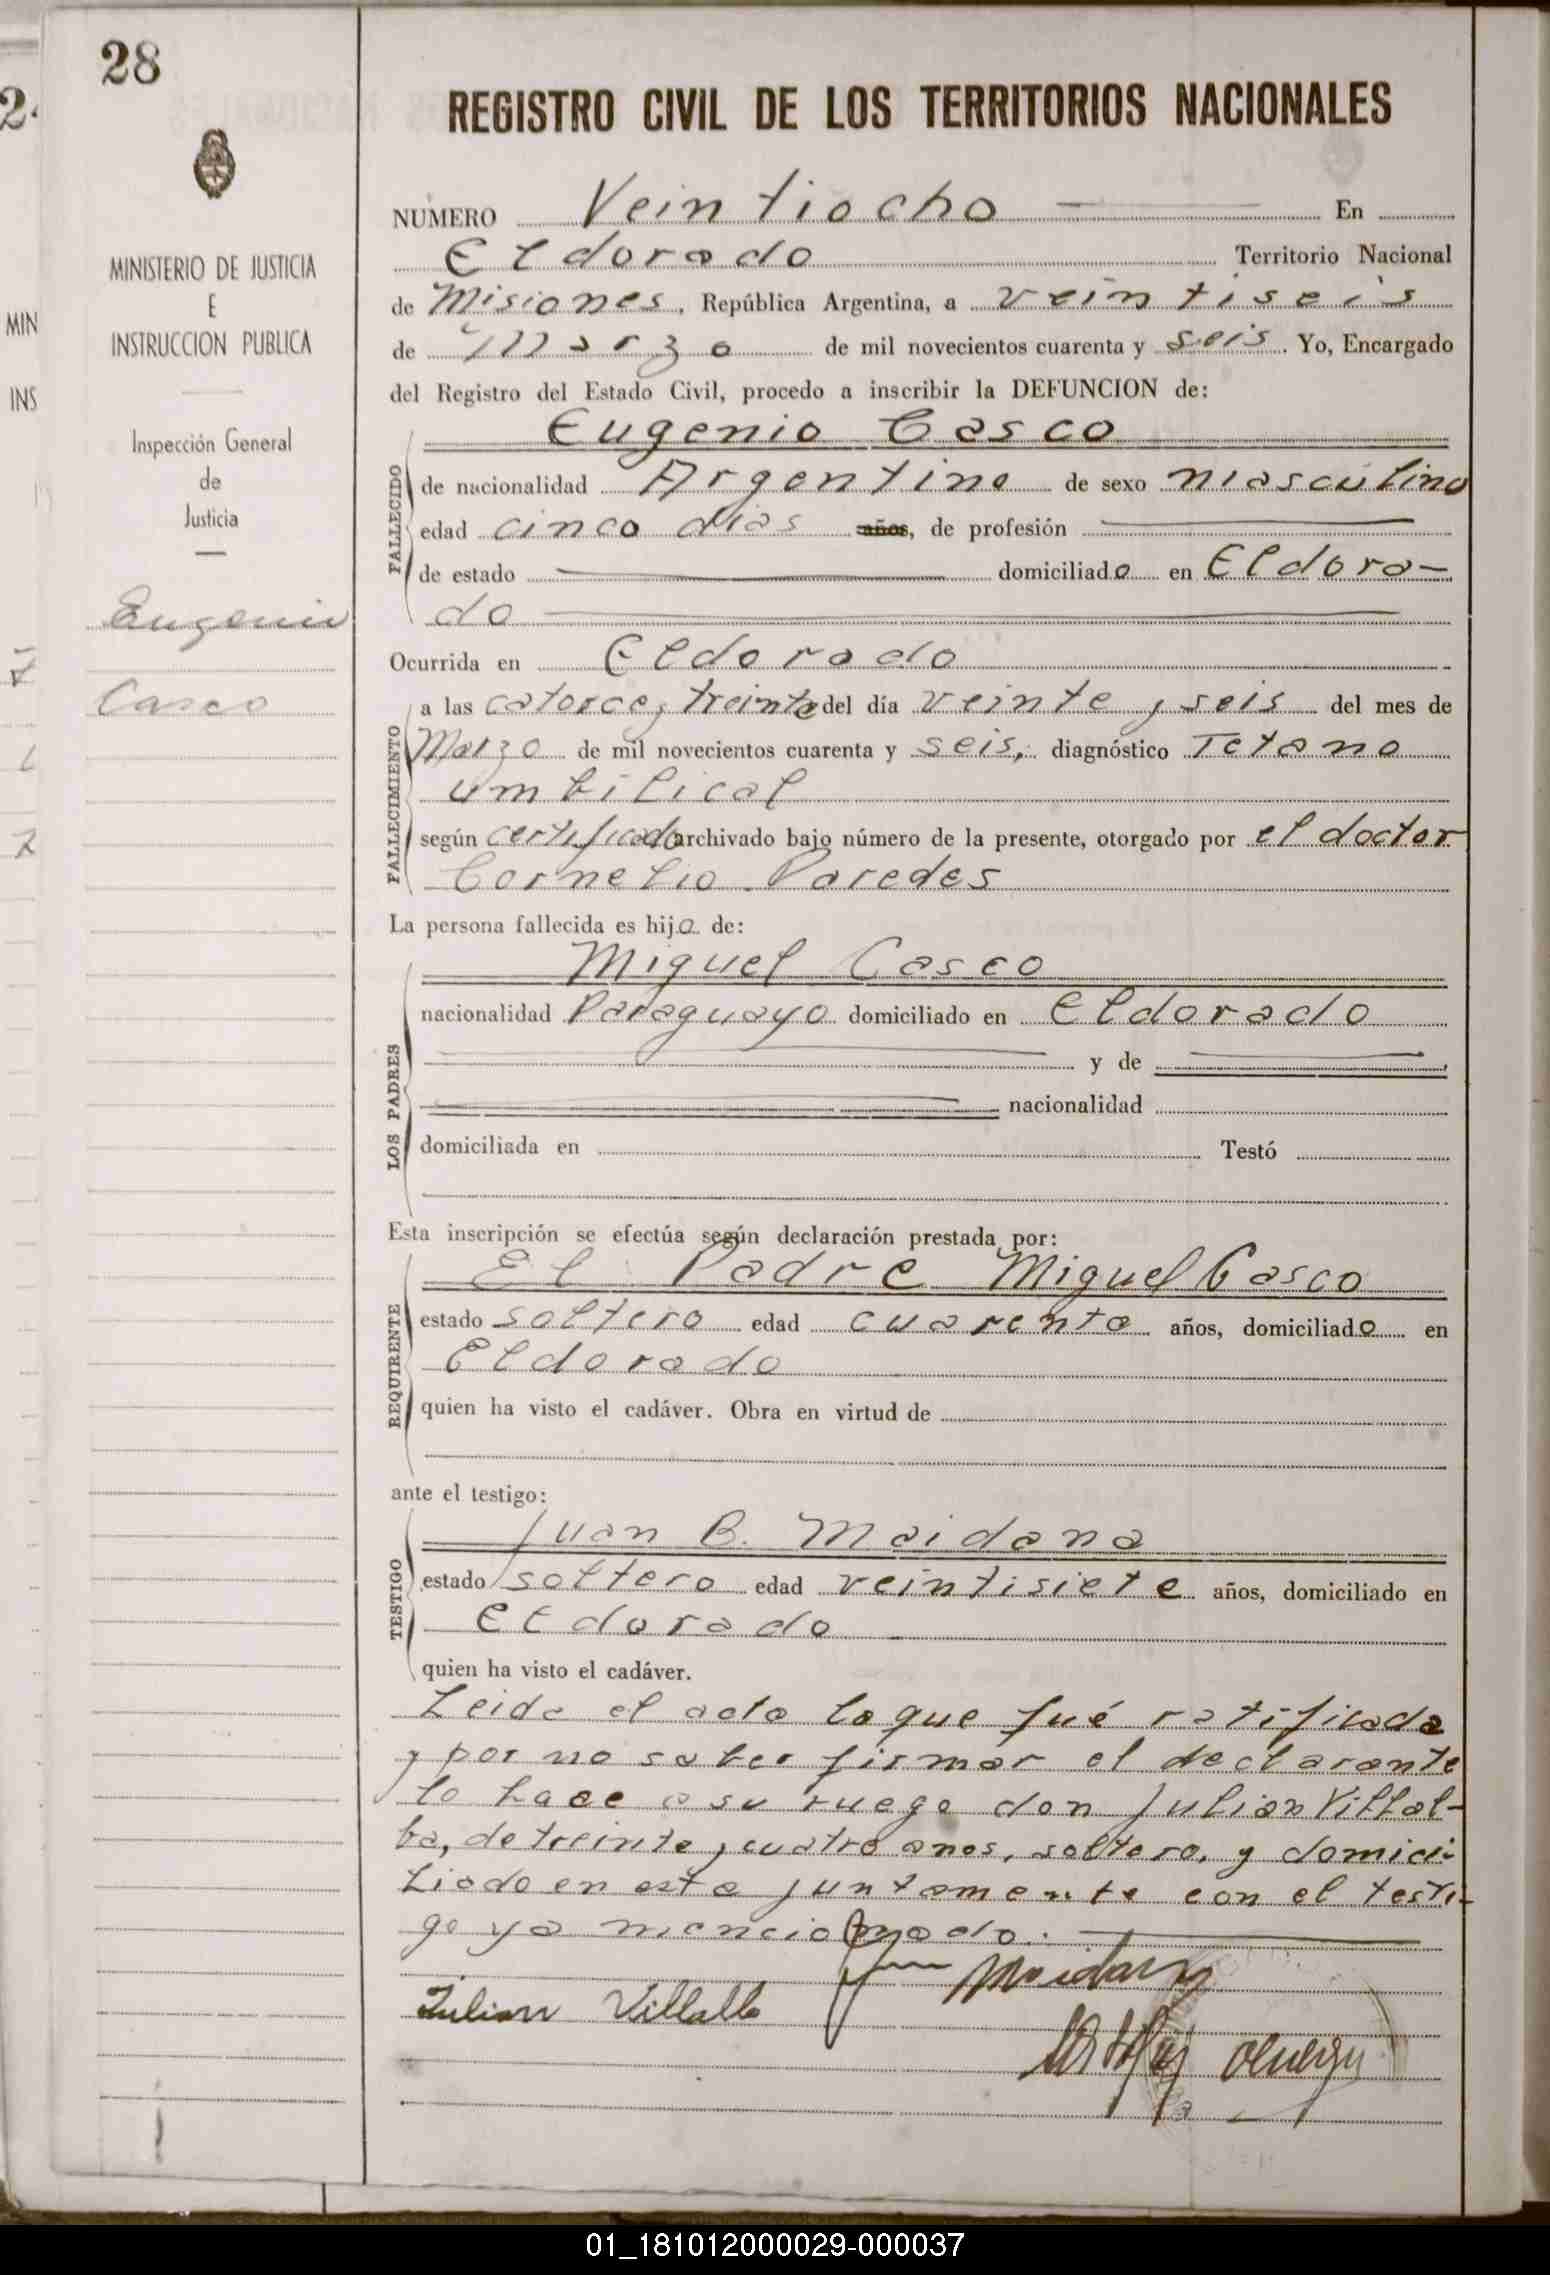 28
MINISTERIO DE JUSTICIA
E
INSTRUCCION PUBLICA
Inspección General
de
Justicia
Eugenio
Casco
REGISTRO CIVIL DE LOS TERRITORIOS NACIONALES
NUMERO Veintiocho En
Eldorado Territorio Nacional
de Misiones, República Argentina, a veintiseis
de Marzo de mil novecientos cuarenta y seis. Yo, Encargado
del Registro del Estado Civil, procedo a inscribir la DEFUNCION de:
Eugenio Casco
FALLECIDO
de nacionalidad Argentino de sexo masculino
edad cinco dias años, de profesión
de estado domiciliado en Eldora-
do
Ocurrida en Eldorado
FALLECIMIENTO
a las catorce y treinta del día veinte y seis del mes de
Marzo de mil novecientos cuarenta y seis, diagnóstico Tetano
umbilical
según certificado archivado bajo número de la presente, otorgado por el doctor
Cornelio Paredes
La persona fallecida es hijo de:
LOS PADRES
Miguel Casco
nacionalidad Paraguayo domiciliado en Eldorado
y de
nacionalidad
domiciliada en Testó
Esta inscripción se efectúa según declaración prestada por:
REQUIRENTE
El Padre Miguel Casco
estado soltero edad cuarenta años, domiciliado en
Eldorado
quien ha visto el cadáver. Obra en virtud de
ante el testigo:
TESTIGO
Juan B. Maidana
estado soltero edad veintisiete años, domiciliado en
Eldorado
quien ha visto el cadáver.
Leida el acta la que fué ratificada
y por no saber firmar el declarante
lo hace a su ruego don Julian Villal-
ba, de treinta y cuatro anos, soltero, y domici-
liado en esta juntamente con el testi-
go ya mencionado.
Juan Maidana
Julian Villalba
01_181012000029-000037